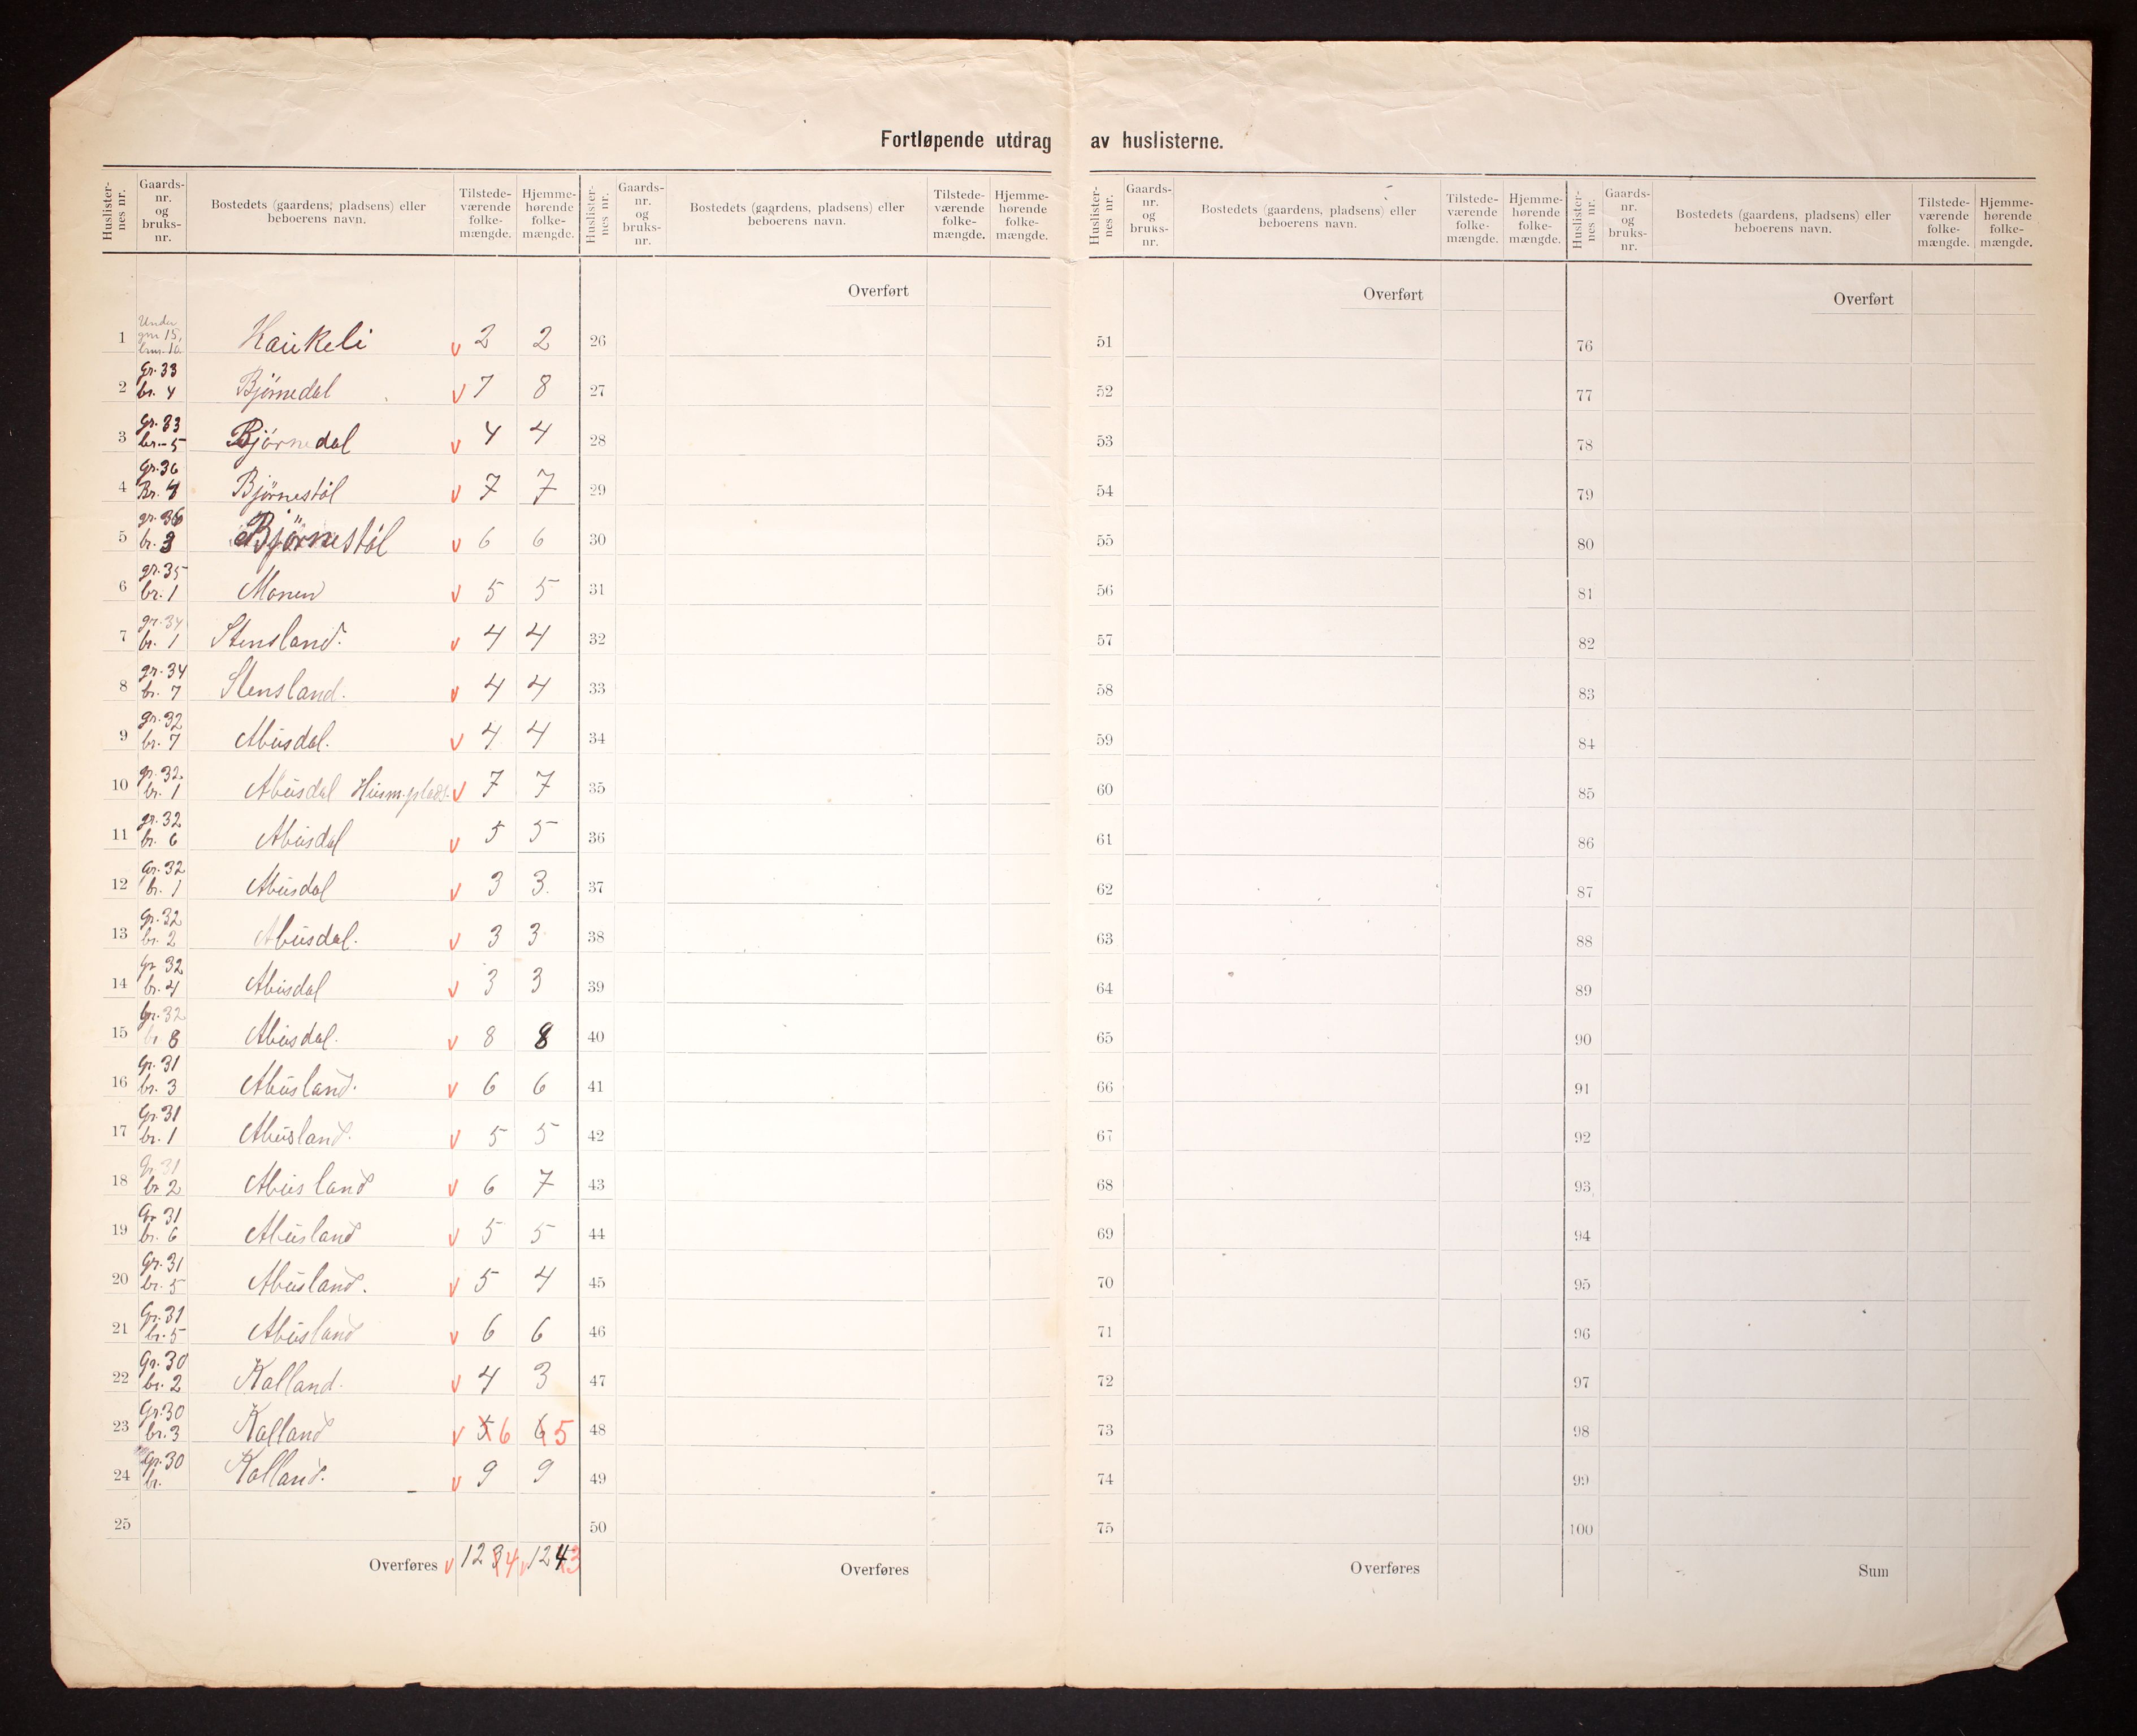 Fortløpende utdrag av huslisterne.
Huslister-nes nr. Gaards-nr. og bruks-nr. Bostedets (gaardens, pladsens) eller beboerens navn. Tilstede-værende folke-mængde. Hjemme-hørende folke-mængde.
Huslister-nes nr. Gaards-nr. og bruks-nr. Bostedets (gaardens, pladsens) eller beboerens navn. Tilstede-værende folke-mængde. Hjemme-hørende folke-mængde.
Huslister-nes nr. Gaards-nr. og bruks-nr. Bostedets (gaardens, pladsens) eller beboerens navn. Tilstede-værende folke-mængde. Hjemme-hørende folke-mængde.
Huslister-nes nr. Gaards-nr. og bruks-nr. Bostedets (gaardens, pladsens) eller beboerens navn. Tilstede-værende folke-mængde. Hjemme-hørende folke-mængde.
Overført Overført Overført
1 Under gnr 15, Haukeli v 2 2 26 51 76
2 Gr. 33 br. 4 Bjørnedal v 7 8 27 52 77
3 Gr. 33 br. 5 Bjørnedal v 4 4 28 53 78
4 Gr. 36 Br. 4 Bjørnestöl v 7 7 29 54 79
5 gr. 36 br. 3 Bjørnestöl v 6 6 30 55 80
6 gr. 35 br. 1 Monen v 5 5 31 56 81
7 gr. 34 br. 1 Stensland. v 4 4 32 57 82
8 gr. 34 br. 7 Stensland. v 4 4 33 58 83
9 gr. 32 br. 7 Abusdal. v 4 4 34 59 84
10 gr. 32. br. 1 Abusdal Husm.plads. v 7 7 35 60 85
11 gr. 32 br. 6 Abusdal v 5 5 36 61 86
12 Gr. 32 br. 1 Abusdal v 3 3. 37 62 87
13 Gr. 32 br. 2 Abusdal. v 3 3 38 63 88
14 Gr 32 br. 4 Abusdal v 3 3 39 64 89
15 Gr. 32 br 8 Abusdal. v 8 8 40 65 90
16 Gr. 31 br. 3 Abusland. v 6 6 41 66 91
17 Gr. 31 br. 1 Abusland. v 5 5 42 67 92
18 Gr. 31 br 2 Abusland v 6 7 43 68 93
19 Gr 31 br. 6 Abusland v 5 5 44 69 94
20 Gr. 31 br. 5 Abusland. v 5 4 45 70 95
21 Gr. 31 br. 5 Abusland v 6 6 46 71 96
22 Gr. 30 br. 2 Kalland. v 4 3 47 72 97
23 Gr. 30 br. 3 Kalland v 5 6 6 5 48 73 98
24 Gr. 30 br. Kalland. v 9 9 49 74 99
25 50 75 100
Overføres v 123 4 v 124 3 Overføres Overføres Sum